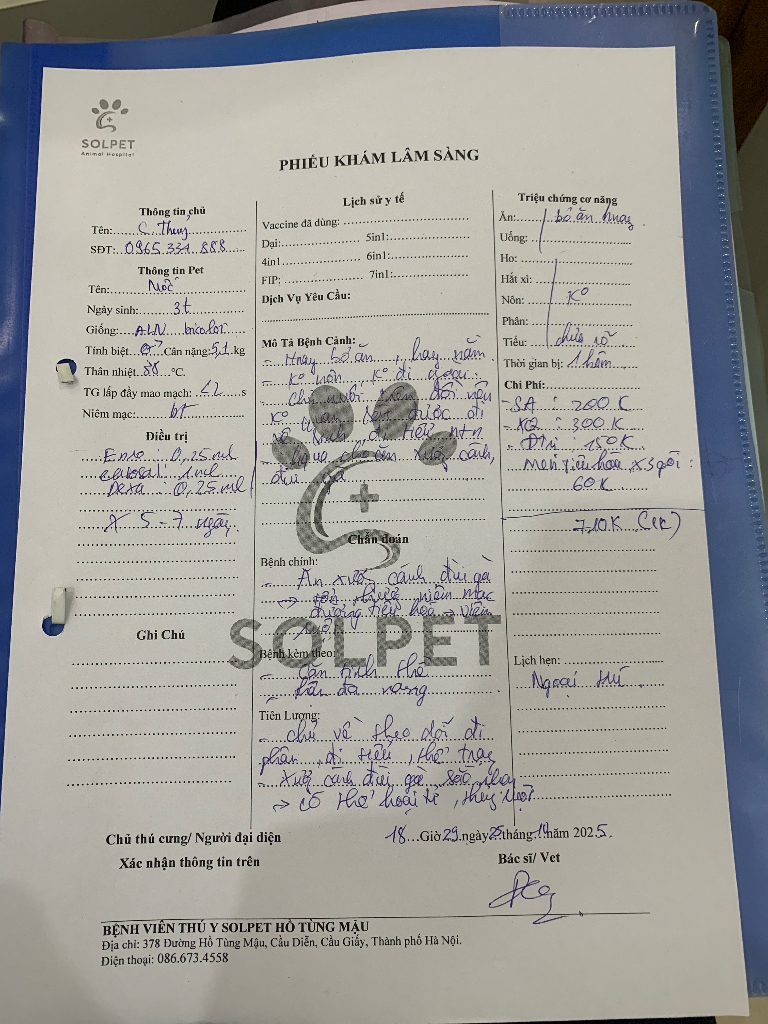 SOLPET
Animal Hospital
PHIẾU KHÁM LÂM SÀNG
Thông tin chủ
Tên: C. Thuý
SĐT: 0965 334 888
Thông tin Pet
Tên: Mốc
Ngày sinh: 3t
Giống: ALN bicolor
Tính biệt ♂ Cân nặng: 5,1 kg
Thân nhiệt 38 °C.
TG lấp đầy mao mạch: <2 s
Niêm mạc: bt
Điều trị
Enro : 0,25 ml
catosal : 1 ml
Dexa : 0,25 ml
x 5-7 ngày
Ghi Chú
Lịch sử y tế
Vaccine đã dùng:
Dại: 5in1:
4in1 6in1:
FIP: 7in1:
Dịch Vụ Yêu Cầu:
Mô Tả Bệnh Cảnh:
- Hnay bỏ ăn, hay nằm
- K° nôn K° đi ngoài
- Chủ nuôi
K° được đi
- Hqua cho ăn xương cánh,
đùi gà
Chẩn đoán
Bệnh chính:
- Ăn xương cánh đùi gà
→ tổn thương niêm mạc
đường tiêu hoá → viêm
ruột
Bệnh kèm theo:
- Căn tinh thể
- thận đa nang
Tiên Lượng:
- chủ về theo dõi đi
phân, đi tiểu, thể trạng
- xương cánh đùi gà sắc nhọn
→ có thể hoại tử, thủng ruột
Triệu chứng cơ năng
Ăn: bỏ ăn hnay
Uống:
Ho:
Hắt xì:
Nôn: K°
Phân:
Tiểu: chưa rõ
Thời gian bị: 1 hôm
Chi Phí:
- SA : 200 K
- XQ : 300 K
- ĐTrị : 150 K
Men tiêu hóa x 3 gói :
60 K
710K (ck)
Lịch hẹn:
Ngoại trú
Chủ thú cưng/ Người đại diện
Xác nhận thông tin trên
18 Giờ 29 ngày 25 tháng năm 2025.
Bác sĩ/ Vet
BỆNH VIỆN THÚ Y SOLPET HỒ TÙNG MẬU
Địa chỉ: 378 Đường Hồ Tùng Mậu, Cầu Diễn, Cầu Giấy, Thành phố Hà Nội.
Điện thoại: 086.673.4558
SOLPET